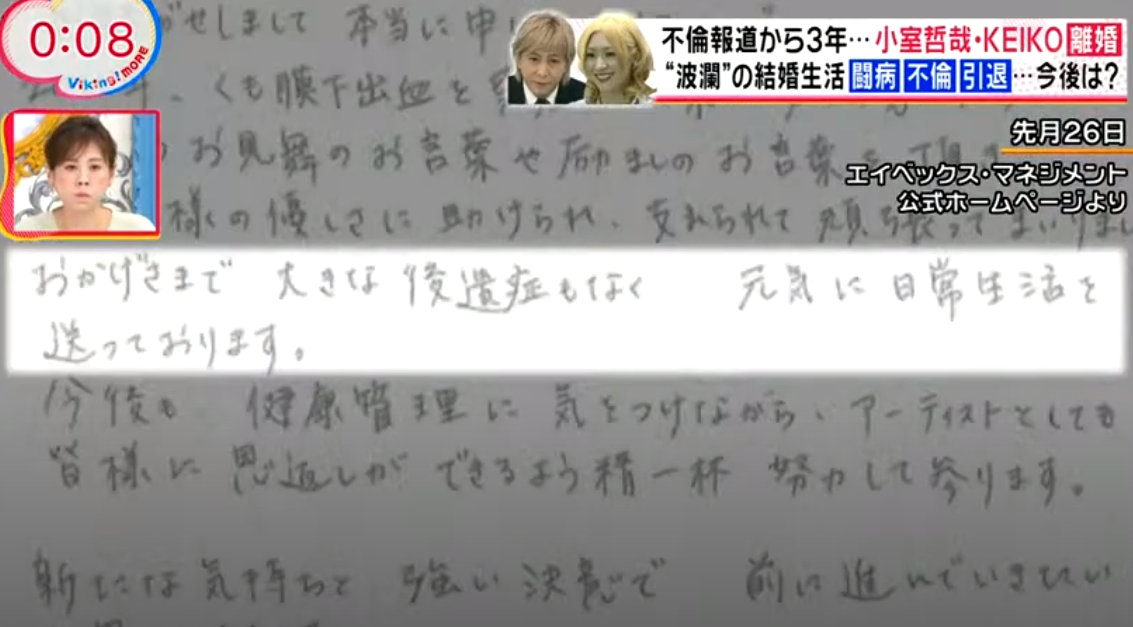 0:08
Viking! MORE
不倫報道から3年…小室哲哉・KEIKO離婚
“波瀾”の結婚生活 闘病 不倫 引退…今後は?
先月26日
エイベックス・マネジメント
公式ホームページより
がせしまして 本当に申し
くも膜下出血を
お見舞のお言葉や励ましのお言葉を頂き
様の優しさに助けられ、支えられて頑張ってまいりまし
おかげさまで 大きな後遺症もなく 元気に日常生活を
送っております。
今後も 健康管理に気をつけながら、アーティストとしても
皆様に恩返しができるよう精一杯 努力して参ります。
新たな気持ちと 強い決意で 前に進んでいきたい